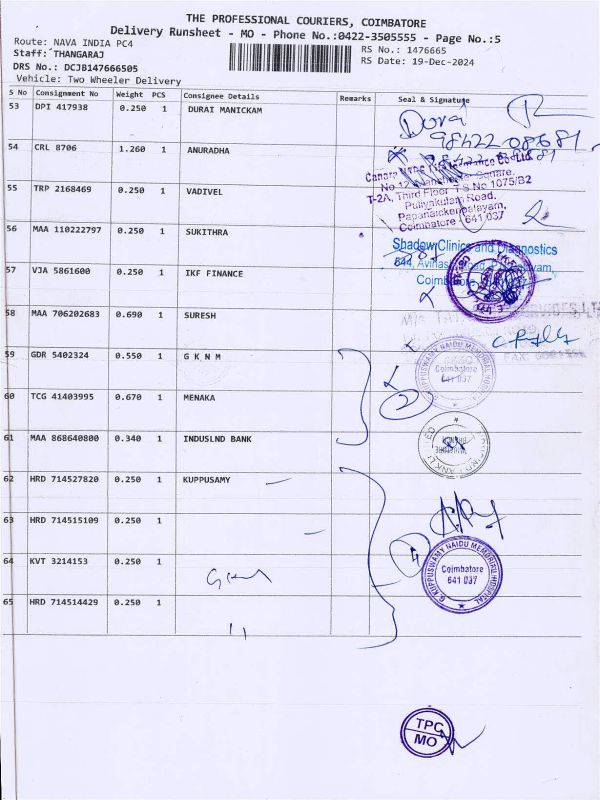 THE PROFESSIONAL COURIERS, COIMBATORE
Delivery Runsheet - MO - Phone No.:0422-3505555 - Page No.:5
Route: NAVA INDIA PC4
RS No.: 1476665
Staff: THANGARAJ
RS Date: 19-Dec-2024
DRS No.: DCJB147666505
Vehicle: Two Wheeler Delivery
S No Consignment No Weight PCS Consignee Details Remarks Seal & Signature
53 DPI 417938 0.250 1 DURAI MANICKAM
Durai
98422 08681
54 CRL 8706 1.260 1 ANURADHA
T-2A, Third Floor T S No 1075/B2
Puliyakulam Road,
Papanaickenpalayam,
Coimbatore - 641 037
55 TRP 2168469 0.250 1 VADIVEL
56 MAA 110222797 0.250 1 SUKITHRA
Shadow Clinics and Diagnostics
57 VJA 5861600 0.250 1 IKF FINANCE
58 MAA 706202683 0.690 1 SURESH
59 GDR 5402324 0.550 1 G K N M
G.KUPPUSWAMY NAIDU MEMORIAL HOSPITAL
Coimbatore
641 037
60 TCG 41403995 0.670 1 MENAKA
2
61 MAA 868640800 0.340 1 INDUSLND BANK
62 HRD 714527820 0.250 1 KUPPUSAMY
63 HRD 714515109 0.250 1
64 KVT 3214153 0.250 1
4
G.KUPPUSWAMY NAIDU MEMORIAL HOSPITAL
Coimbatore
641 037
65 HRD 714514429 0.250 1
TPC
MO